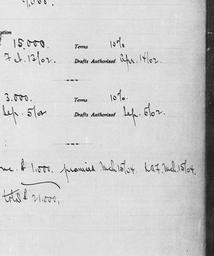 15,000. Terms 10%
Feb. 13/02. Drafts Authorized Apr. 14/02.
3,000. Terms 10%.
Sep. 5/02 Drafts Authorized Sep. 5/02.
$1,000. promised Mch 15/04. Mch 15/04.
total $21,000.